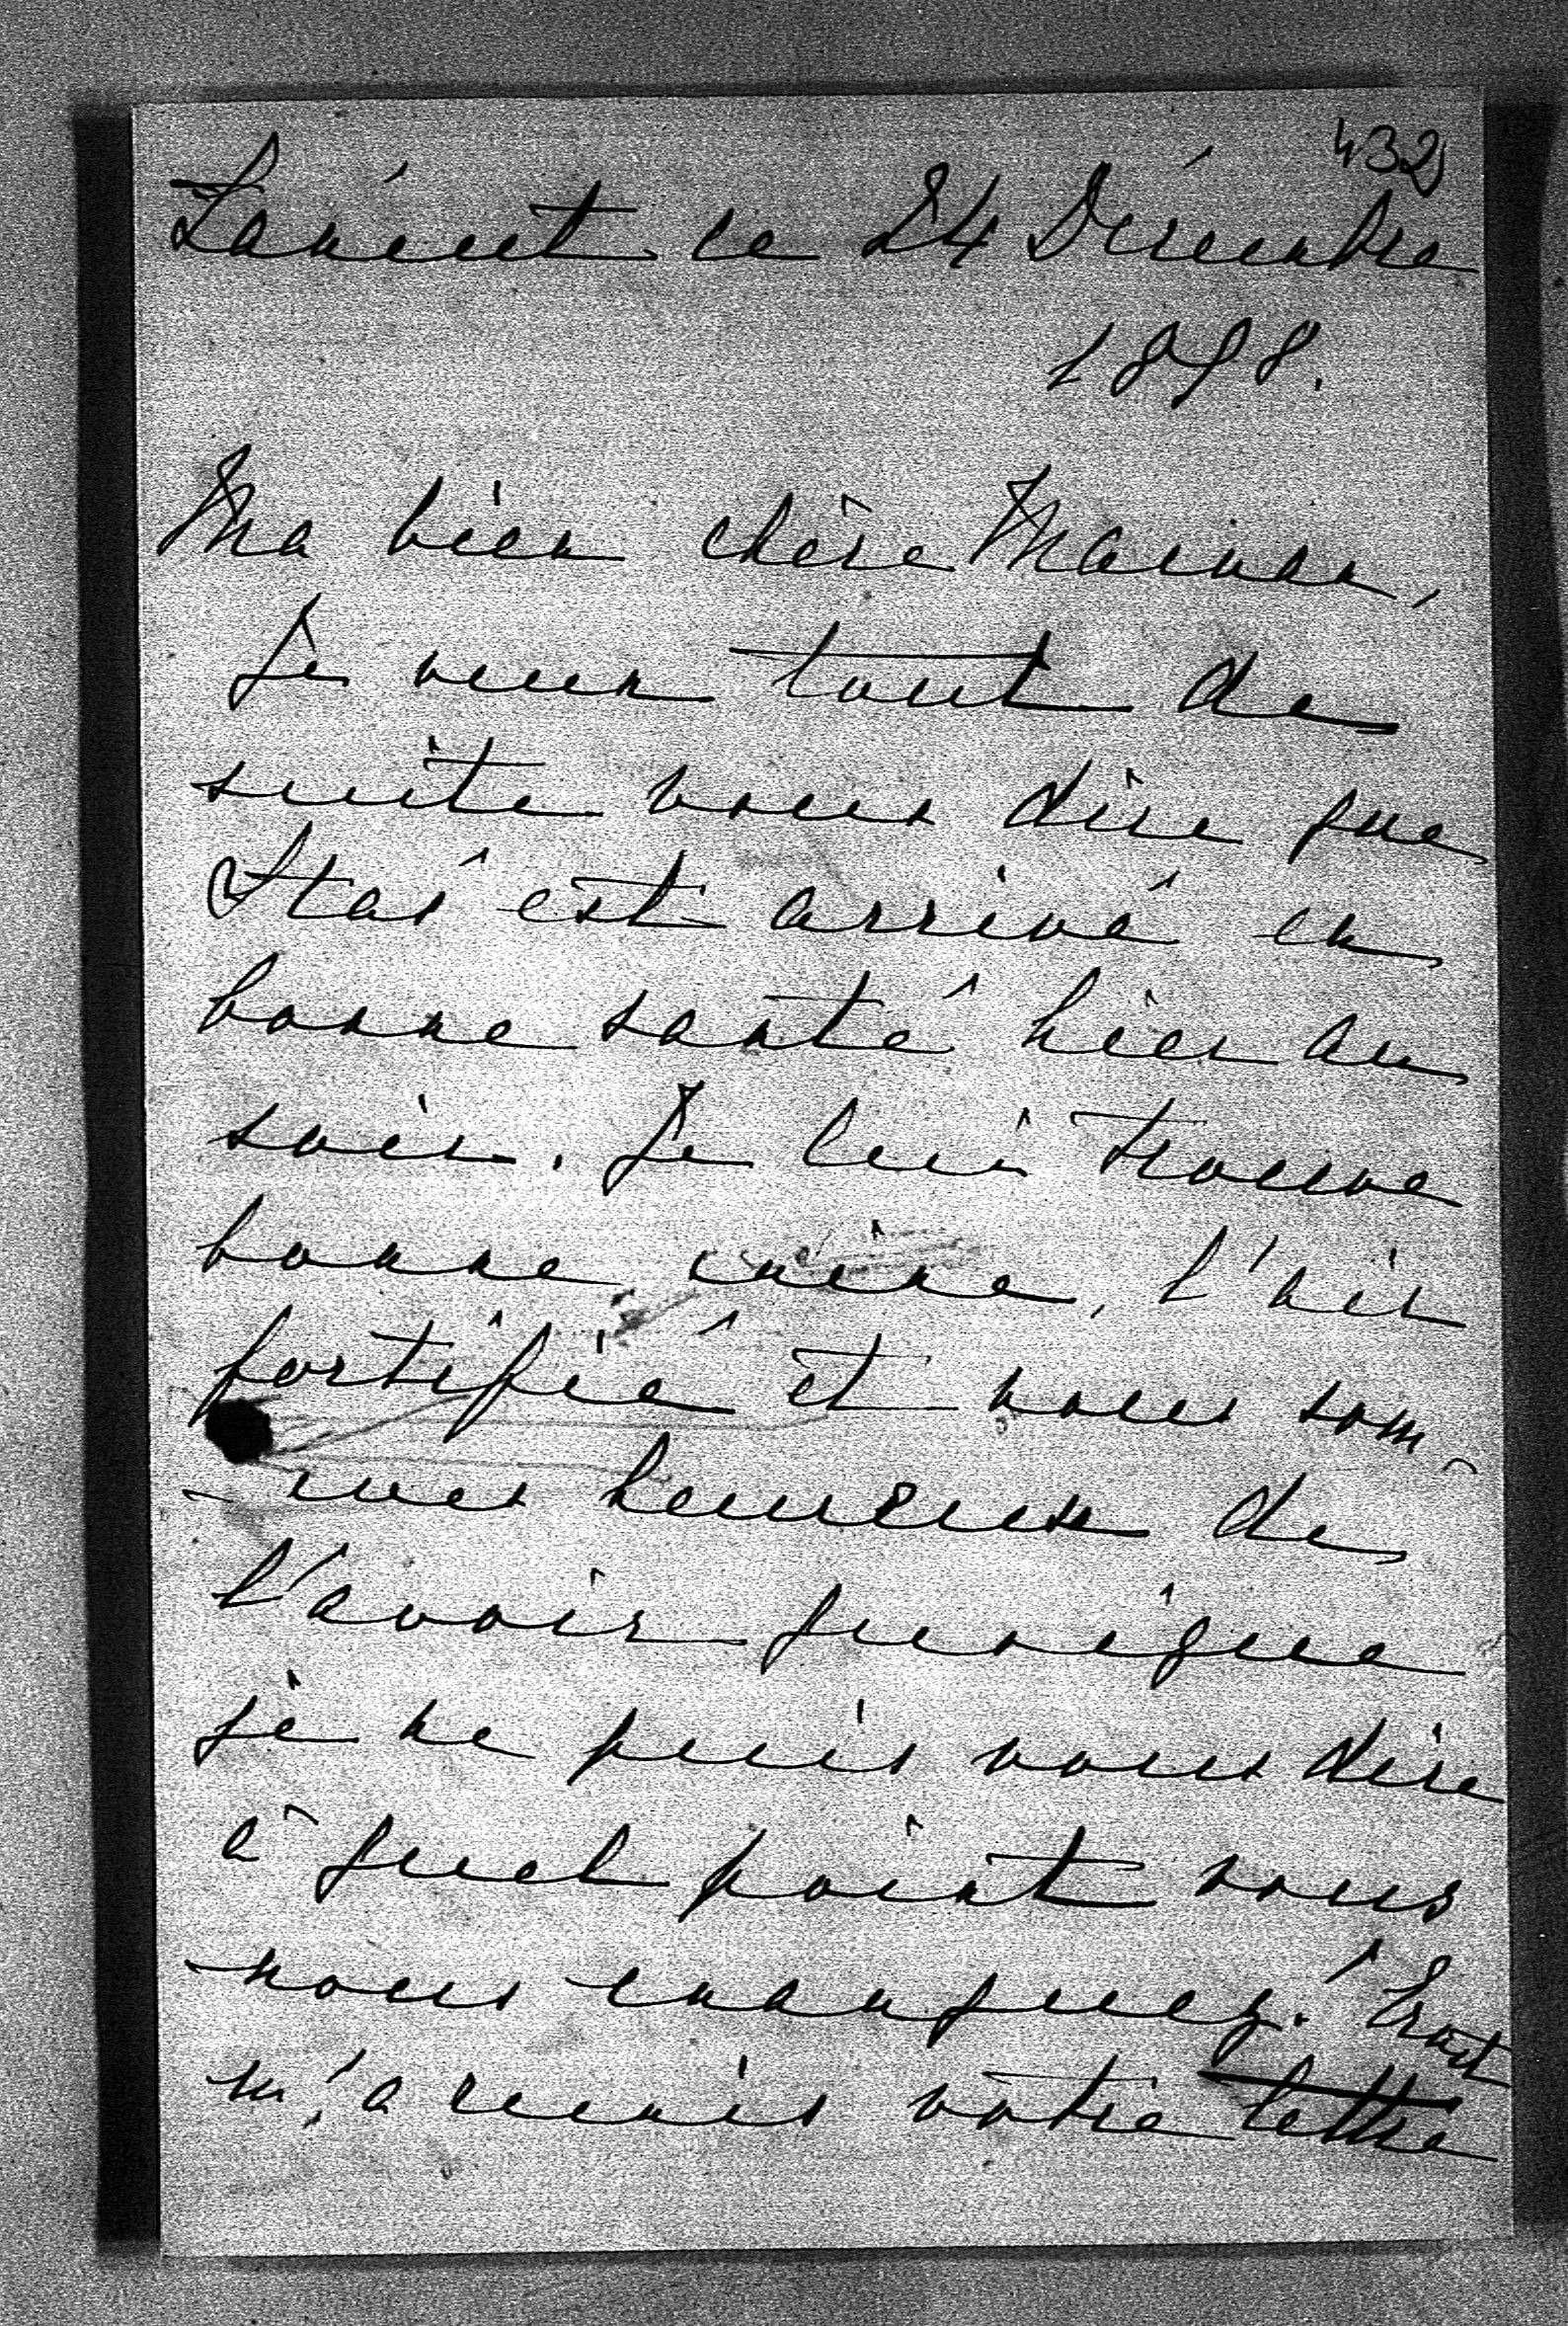 432
Łańcut ce 24 Décembre
1898.
Ma bien chère Maman,
Je veux tout de
suite vous dire que
Staś est arrivé en
bonne santé hier au
soir. Je lui trouve
bonne mine, l'air
fortifié et nous som-
-mes heureux de
l'avoir quoique
je ne puis vous dire
à quel point vous
nous manquez!
m'a remis votre lettre